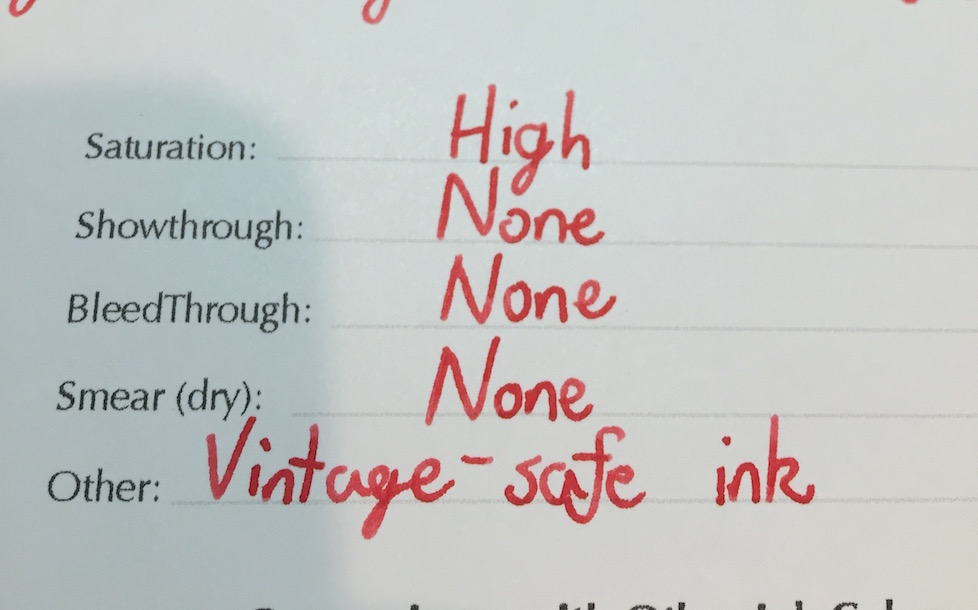 Saturation: High
Showthrough: None
BleedThrough: None
Smear (dry): None
Other: Vintage-safe ink